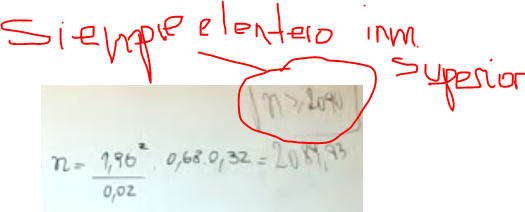 Siempre el entero inm.
superior
n ≥ 2090
n = 1,96² . 0,68.0,32 = 2089,83
0,02